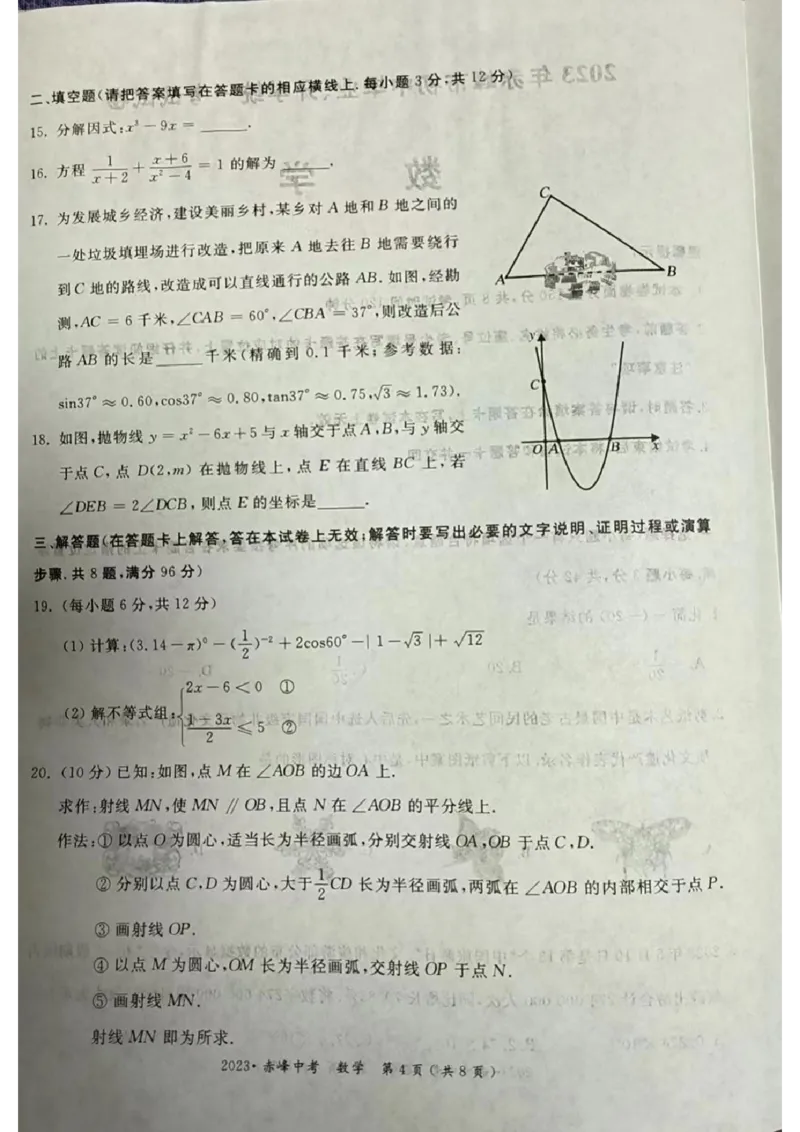 二、填空题(请把答案填写在答题卡的相应横线上.每小题3分,共12分)
15. 分解因式:x³－9x＝______.
16. 方程 1/(x+2) + (x+6)/(x²－4) ＝1 的解为______.
17. 为发展城乡经济,建设美丽乡村,某乡对 A 地和 B 地之间的
一处垃圾填埋场进行改造,把原来 A 地去往 B 地需要绕行
到 C 地的路线,改造成可以直线通行的公路 AB. 如图,经勘
测,AC＝6 千米,∠CAB＝60°,∠CBA＝37°,则改造后公
路 AB 的长是______千米(精确到 0.1 千米;参考数据:
sin37°≈0.60,cos37°≈0.80,tan37°≈0.75,√3≈1.73).
C
A
B
18. 如图,抛物线 y＝x²－6x＋5 与 x 轴交于点 A,B,与 y 轴交
于点 C,点 D(2,m) 在抛物线上,点 E 在直线 BC 上,若
∠DEB＝2∠DCB,则点 E 的坐标是______.
y
C
O A B x
三、解答题(在答题卡上解答,答在本试卷上无效;解答时要写出必要的文字说明、证明过程或演算
步骤.共8题,满分96分)
19. (每小题6分,共12分)
(1) 计算:(3.14－π)⁰－(1/2)⁻²＋2cos60°－|1－√3|＋√12
(2) 解不等式组:{2x－6＜0 ①
(1－3x)/2 ≤5 ②
20. (10分)已知:如图,点 M 在 ∠AOB 的边 OA 上.
求作:射线 MN,使 MN∥OB,且点 N 在 ∠AOB 的平分线上.
作法:① 以点 O 为圆心,适当长为半径画弧,分别交射线 OA,OB 于点 C,D.
② 分别以点 C,D 为圆心,大于 1/2 CD 长为半径画弧,两弧在 ∠AOB 的内部相交于点 P.
③ 画射线 OP.
④ 以点 M 为圆心,OM 长为半径画弧,交射线 OP 于点 N.
⑤ 画射线 MN.
射线 MN 即为所求.
2023·赤峰中考 数学 第4页(共8页)